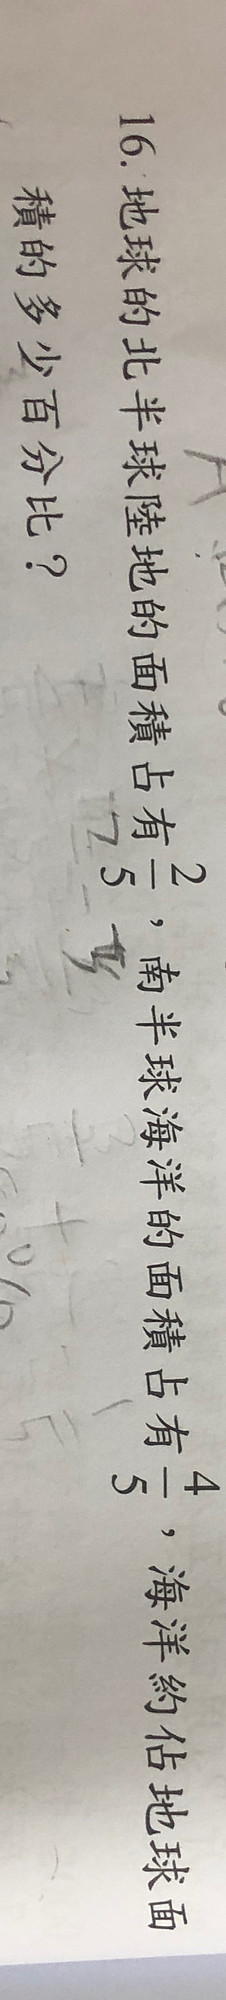 16. 地球的北半球陸地的面積占有 2/5 ，南半球海洋的面積占有 4/5 ，海洋約佔地球面
積的多少百分比？